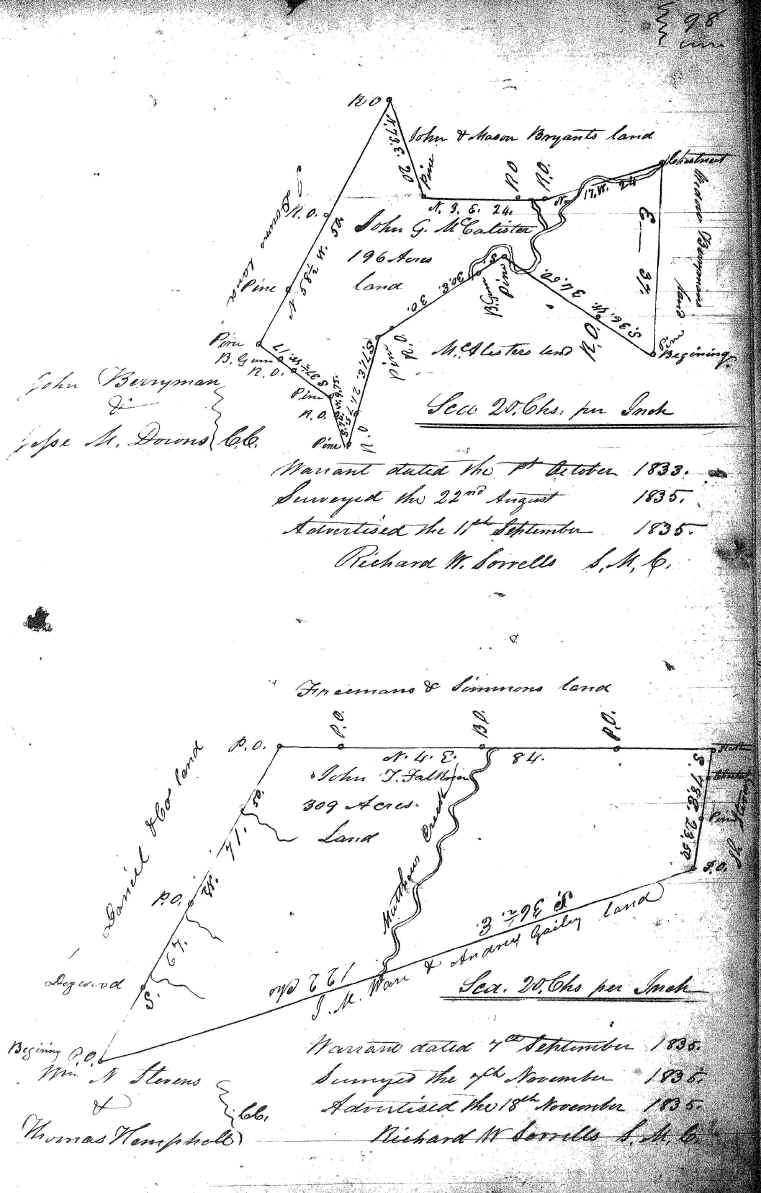 98
R.O
John & Mason Bryants land
N. 73. E. 20
Pine
R.O
R.O.
N. 17. W. 24
N. 3. E. 24.
R.O.
John G. McCalister
196 Acres
land
E 37.
Mason Berrymans
land
Pine
Pine
B. Gum
Pine
30. E.
30.
34.50.
S. 36. W.
R.O
Pine
Begining.
Pine
B. Gum
R.O.
Pine
R.O.
Pine
Pine
R.O
McAlesters land
Sca 20. Chs. per Inch
John Berryman
&
Jesse M. Downs C.C.
Warrant dated the 1st October 1833.
Surveyed the 22nd August 1835.
Advertised the 11th September 1835.
Richard W. Sorrells S. M. C.
Freemans & Simmons land
P.O.
P.O.
B.O.
P.O.
N. 4. E. 84.
John T. Falkner
309 Acres.
Land
Matthews Creek
Daniel & Co land
71. 50.
W.
P.O.
67.
Dogwood
S.
S. 78 E. 23.50
P.O.
S. 36 1/2 E.
122 Chs
J. M. Ware & Andrew Gailey land
Sca. 20. Chs per Inch
Begining P.O.
Wm N Stevens
&
Thomas Hemphill
CC.
Warrant dated 7th September 1835.
Surveyed the 7th November 1835.
Advertised the 18th November 1835.
Richard W Sorrells S. M. C.